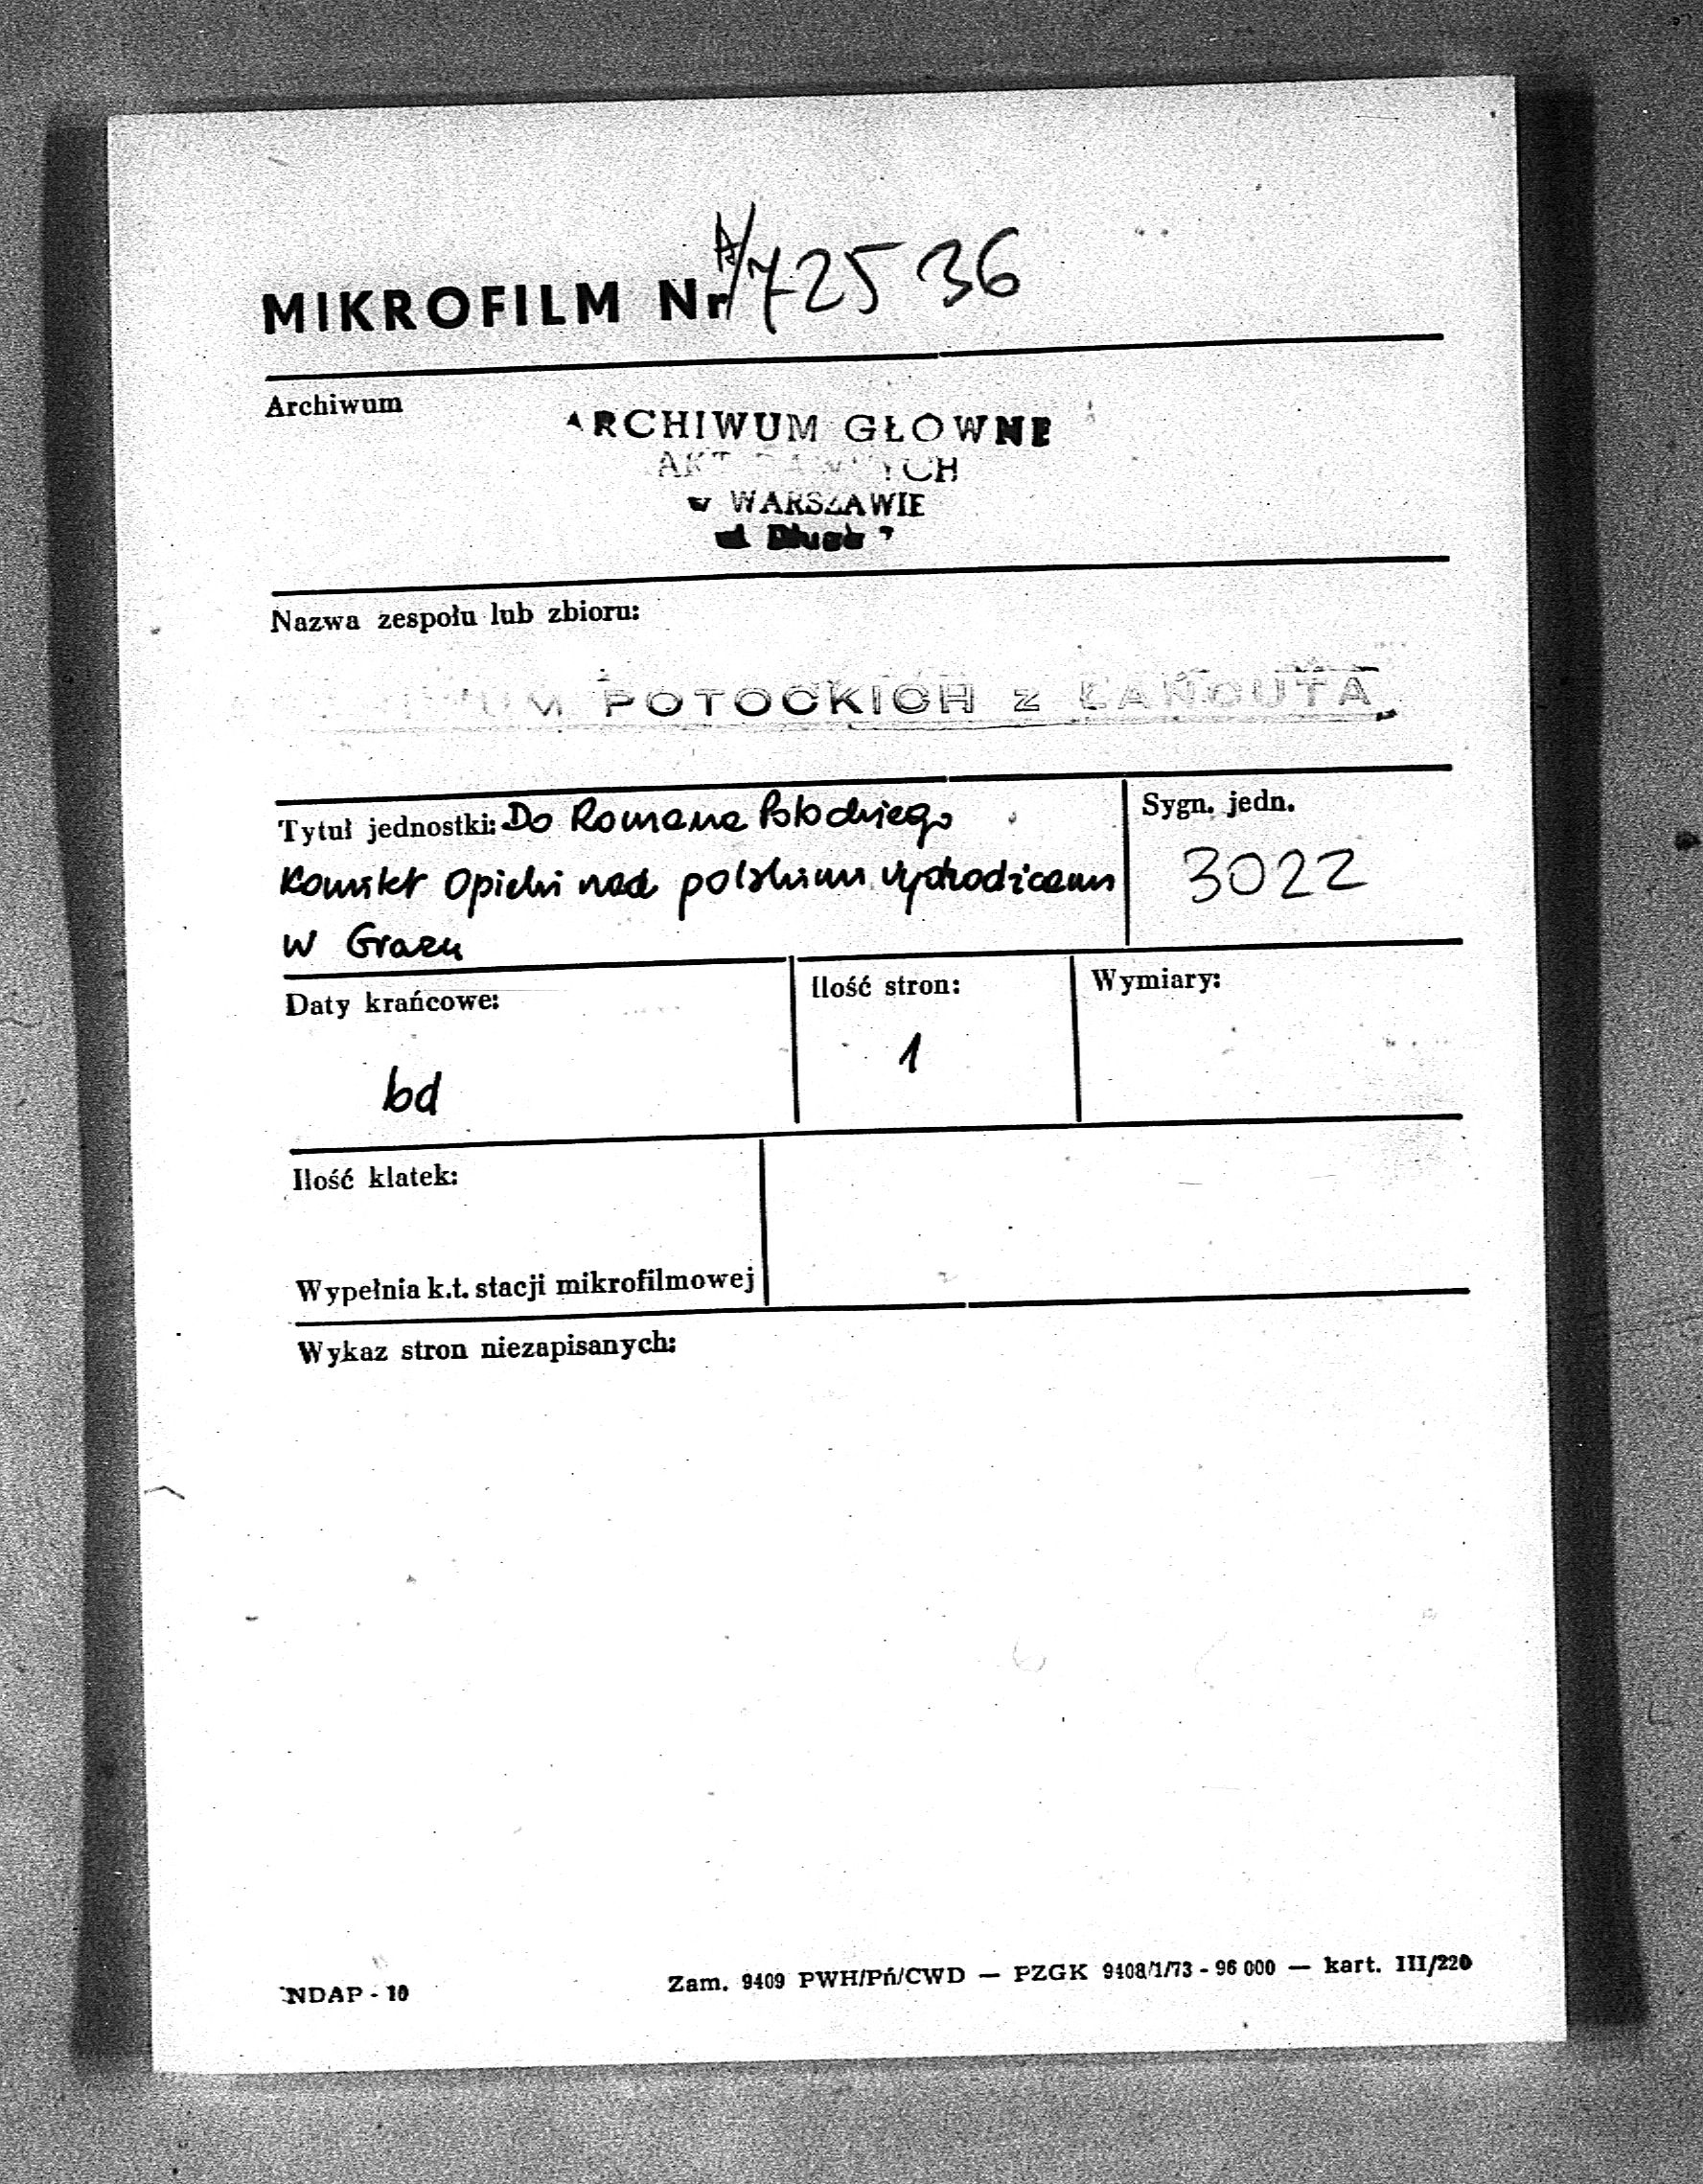 MIKROFILM Nr A/72536
Archiwum
ARCHIWUM GŁOWNE
AKT DAWNYCH
w WARSZAWIE
ul Długa 7
Nazwa zespołu lub zbioru:
POTOCKICH z ŁAŃCUTA
Tytuł jednostki: Do Romana Potockiego
Komitet Opieki nad polskimi wychodźcami
w Grazu
Sygn. jedn.
3022
Daty krańcowe:
bd
Ilość stron:
1
Wymiary:
Ilość klatek:
Wypełnia k.t. stacji mikrofilmowej
Wykaz stron niezapisanych:
NDAP - 10
Zam. 9409 PWH/Pń/CWD — PZGK 9408/1/73 - 96 000 — kart. III/220